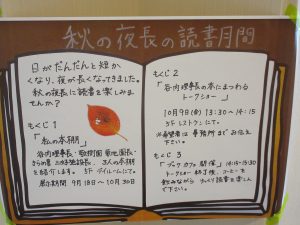 秋の夜長の読書月間
日がだんだんと短か
くなり、夜が長くなってきました。
秋の夜長に読書を楽しみま
せんか？
もくじ 1
「私の本棚」
谷内理事長・
3人の本棚
を紹介します。 5F デイルームにて。
展示期間 9月18日～10月30日
もくじ 2
「谷内理事長の本にまつわる
トークショー」
10月9日(金) 13:30～14:15
5F レストランにて。
※希望者は 事務所まで お伝え
下さい。
もくじ 3
「ブックカフェ開催」 14:15-15:30
トークショー終了後、コーヒーを
飲みながら ゆっくり読書を楽しん
で下さい。